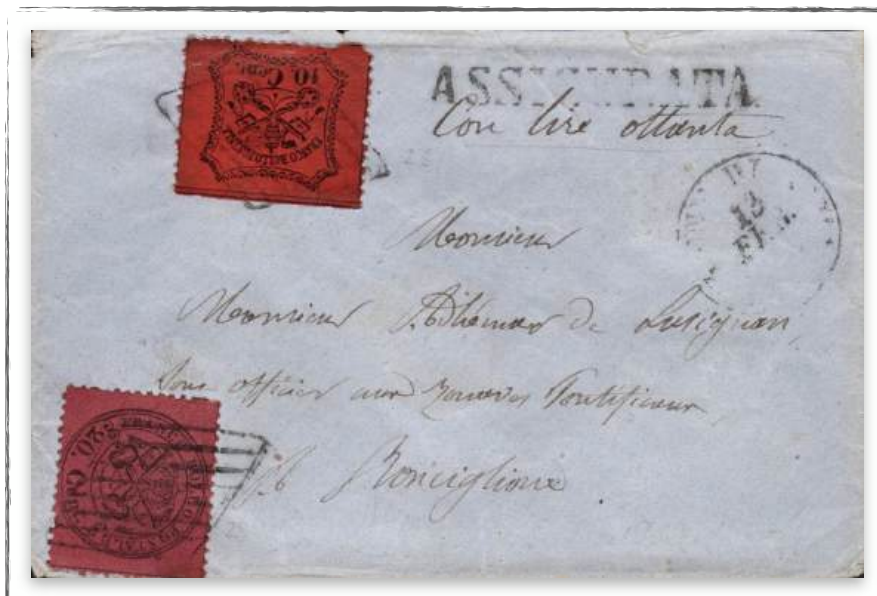 10 Cent
FRANCO BOLLO POSTALE
ASSICURATA
Con lire ottanta
12
FEB.
Monsieur
Monsieur Adhémar de Lusignan,
Sous officier aux Zouaves Pontificaux
Ronciglione
20. Cent
FRANCO BOLLO POSTALE